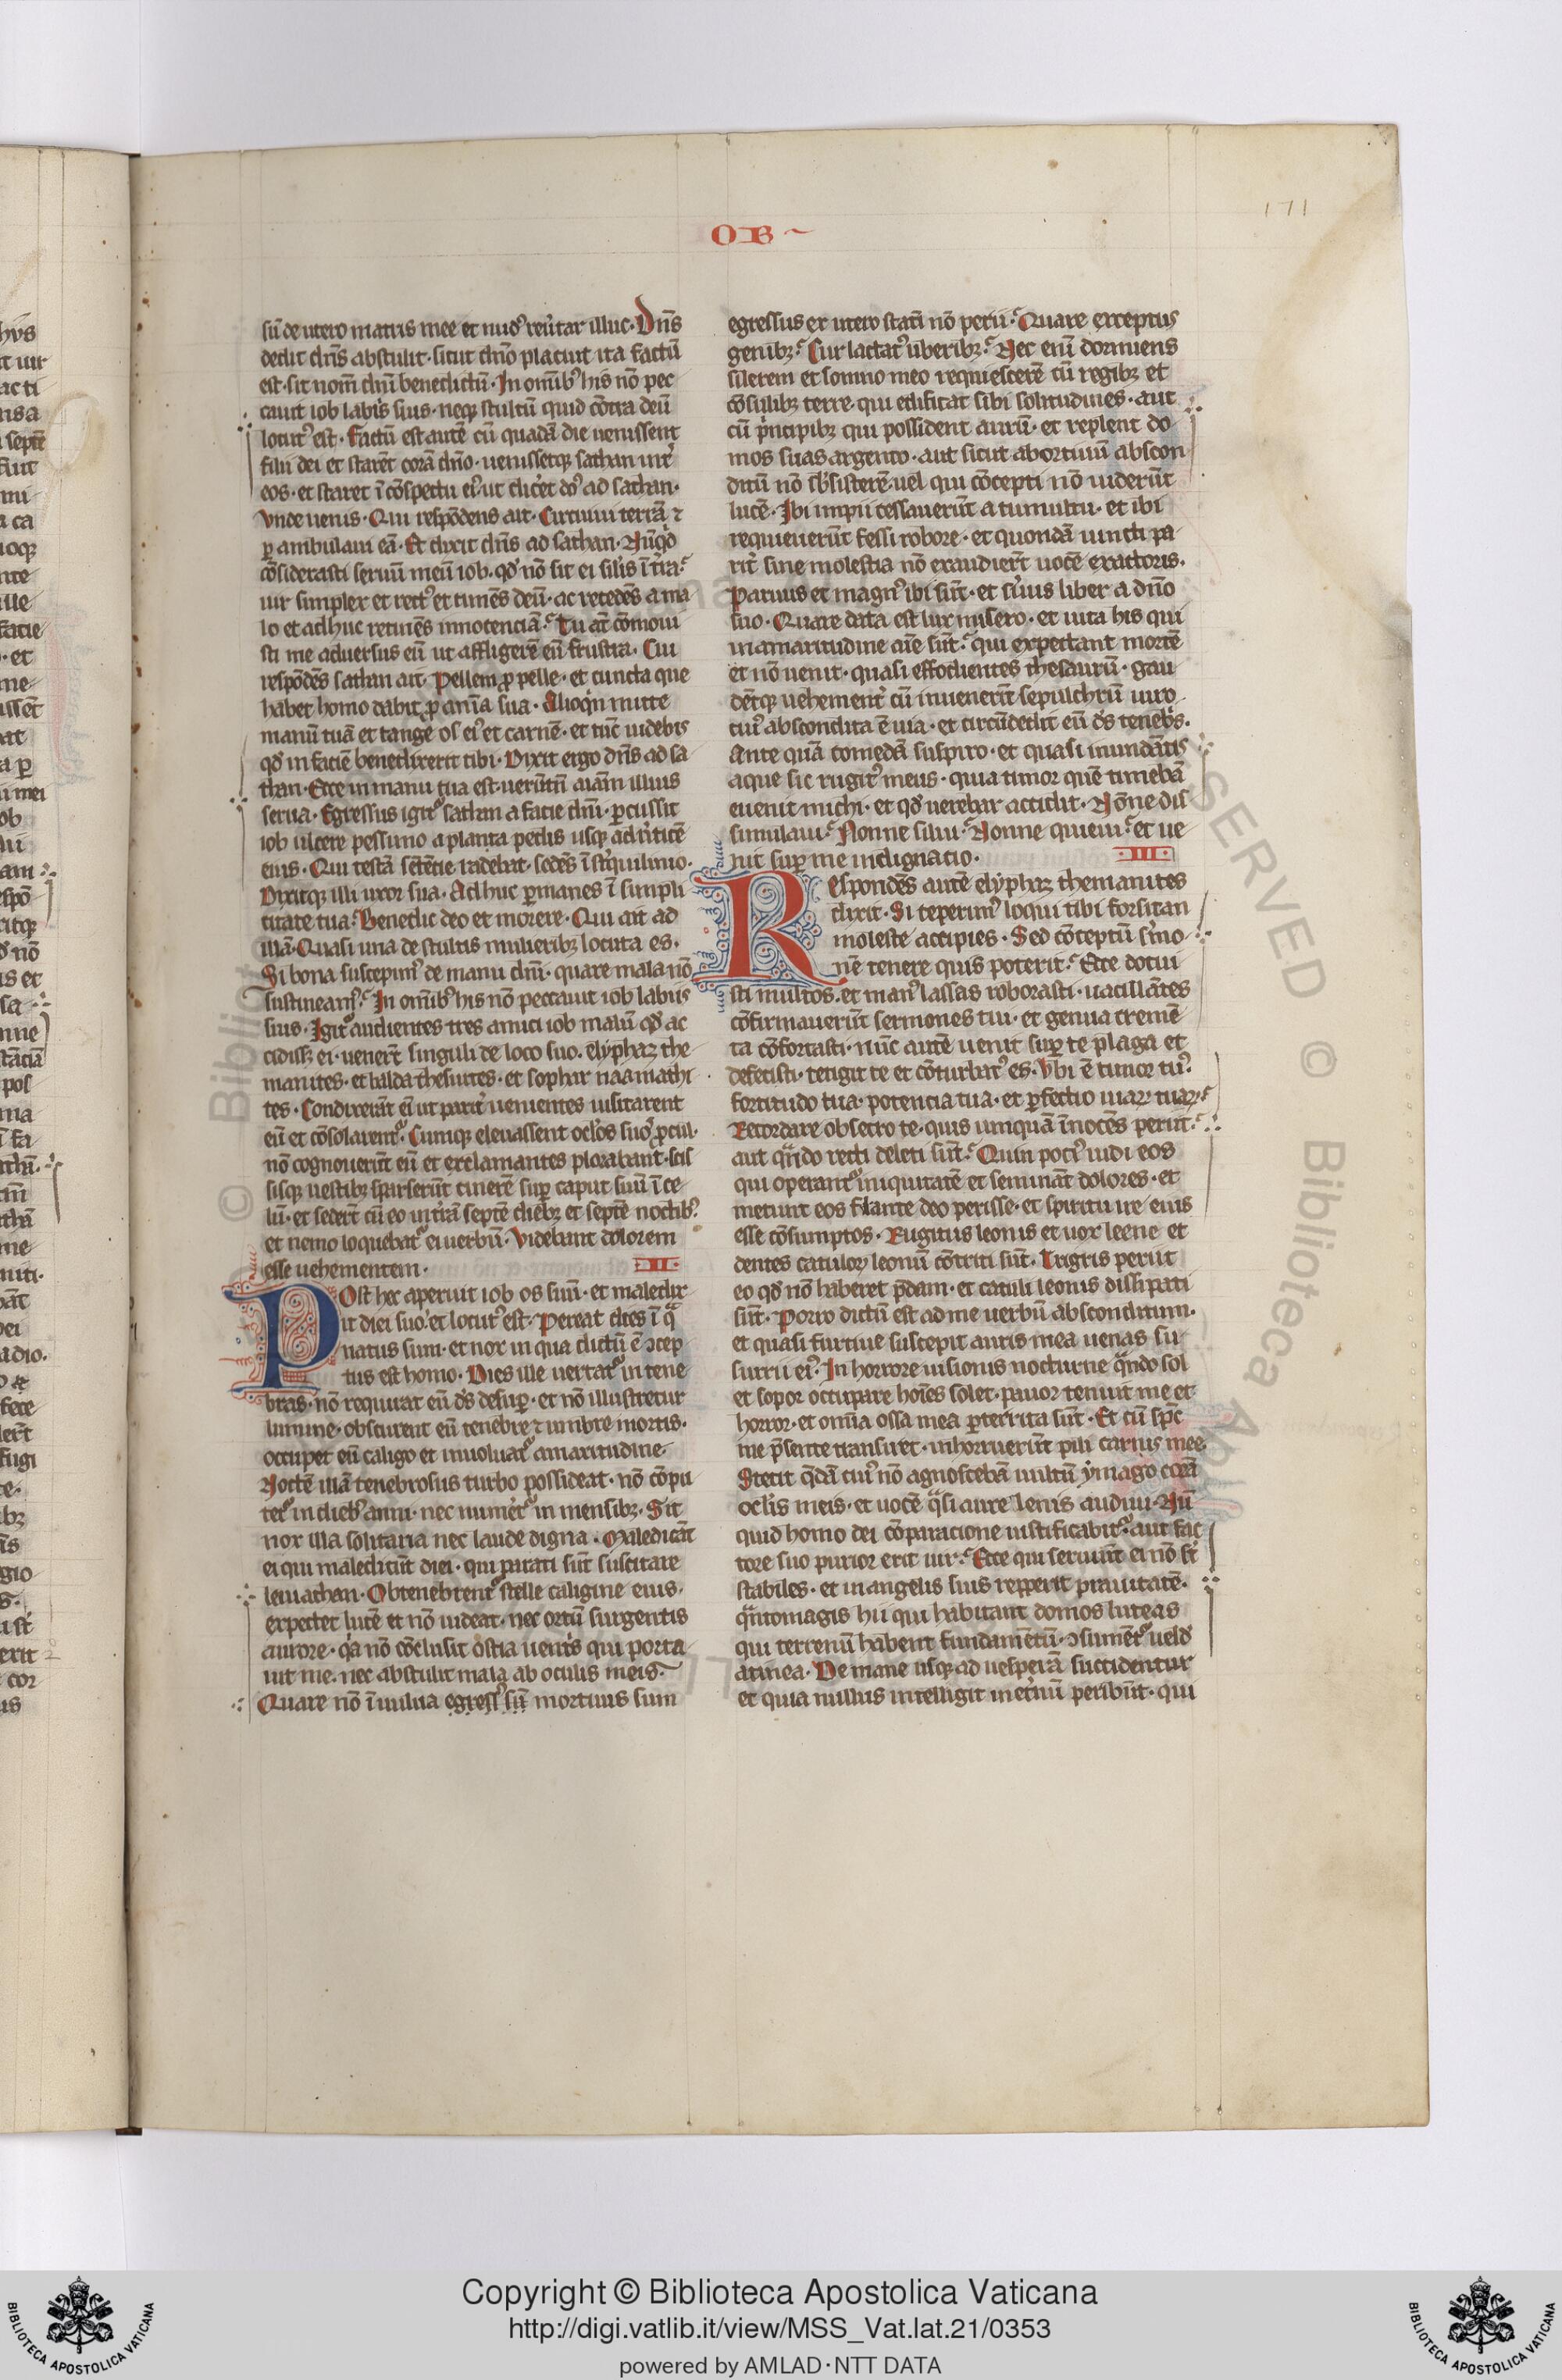 171
OB
sū de utero matris mee et nudꝰ reuˀtar illuc· Dn̄s
dedit dn̄s abstulit· sicut dn̄o placuit ita factū
est· sit nom̄ dn̄i benedictū· In om̄ibꝰ his nō pec
cauit iob labiˀs suis· neqꝫ stultū quid cōtra deū
locutꝰ est· Factū est autē cū quadā die uenissent
filii dei et starēt corā dn̄o· uenissetqꝫ sathan intˀ
eos· et staret ī cōspectu eiꝰ· ut dicˀet dn̄s ad sathan·
Vnde uenis· Qui respōdens ait· Circuiui terrā ⁊
ꝑambulaui eā· Et dixit dn̄s ad sathan· Nūqͥd
cōsiderasti seruū meū iob· qd̓ nō sit ei silˀis ī tˀra·
uir simplex et rectꝰ et timēs deū· ac recedēs a ma
lo et adhuc retinēs innocenciā· Tu at̄ cōmoui
sti me aduersus eū ut affligerē eū frustra· Cui
respōdēs sathan ait· Pellem ꝓ pelle· et cuncta que
habet homo dabit ꝓ anīa sua· Alioqͥn mitte
manū tuā et tange os eiꝰ et carnē· et tūc uidebis
qd̓ in faciē benedixerit tibi· Dixit ergo dn̄s ad sa
than· Ecce in manu tua est· uerūtn̄ aīam illius
serua· Egressus igitᷣ sathan a facie dn̄i· ꝑcussit
iob ulcere pessimo a planta pedis usqꝫ ad uˀticē
eius· Qui testa sētēcie radebat· sedēs ī stˀquilinio·
Dixitqꝫ illi uxor sua· Adhuc ꝑmanes ī simpli
citate tua· Benedic deo et morere· Qui ait ad
illā· Quasi una de stultis mulieribꝫ locuta es·
Si bona suscepimꝰ de manu dn̄i· quare mala nō
sustineamꝰ· In om̄ibꝰ his nō peccauit iob labiis
suis· Igitᷣ audientes tres amici iob malū qd̓ ac
cidissꝫ ei· uenerūt singuli de loco suo· elyphaz the
manites· et baldathesuites· et sophar naamathi
tes· Condixerāt eī ut paritˀ uenientes uisitarent
eū et cōsolarentᷣ· Cumqꝫ eleuassent oclˀos suoˢ ꝓcul·
nō cognouerūt eū et exclamantes plorabant· scis
sisqꝫ uestibꝫ sparserūt cinerē suꝑ caput suū ī ce
lū· et sederūt cū eo ī tˀrā septē diebꝫ et septē noctibꝰ
et nemo loquebatᷣ ei uerbū· Videbant dolorem
esse uehementem· III·
Post hec aperuit iob os suū· et maledix
it diei suo· et locutꝰ est· Pereat dies ī qͣ
natus sum· et nox in qua dictū ē ↄcep
tus est homo· Dies ille uertatᷣ in tene
bras· nō requirat eū dˀs desuꝑ· et nō illustretur
lumine· obscurent eū tenebre ⁊ umbre mortis·
occupet eū caligo et inuoluatᷣ amaritudine·
Noctē illā tenebrosus turbo possideat· nō cōpu
tetᷣ in diebꝰ anni· nec numerˀetᷣ in mensibꝫ· Sit
nox illa solitaria nec laude digna· Maledicāt
ei qui maledicūt diei· qui parati sūt suscitare
leuiathan· Obtenebrentᷣ stelle caligine eius·
expectet lucē et nō uideat· nec ortū surgentis
aurore· qͥa nō cōclusit ostia uentˀs qui porta
uit me· nec abstulit mala ab oculis meis·
Quare nō ī uulua egressꝰ sū mortuus sum
egressus ex utero statī nō perii· Quare exceptus
genibꝫ· Cur lactatꝰ uberibꝫ· Nec enī dormiens
silerem et somno meo requiescerē cū regibꝫ et
cōsulibꝫ terre· qui edificāt sibi solitudines· aut
cū prīcipibꝫ qui possident aurū· et replent do
mos suas argento· aut sicut abortiuū abscon
ditū nō sb̓sisterē· uel qui cōcepti nō uiderūt
lucē· Ibi impii cessauerūt a tumultu· et ibi
requieuerūt fessi robore· et quondā uincti pa
ritˀ sine molestia nō exaudierūt uocē exactoris·
Paruus et magnꝰ ibi sūt· et sˀuus liber a dn̄o
suo· Quare data est lux misero· et uita his qui
in amaritudine aīe sūt· qui expectant mortē
et nō uenit· quasi effodientes thesaurū· gau
dētqꝫ uehementˀ cū inuenerīt sepulchrū uiro
cuiꝰ abscondita ē uia· et circūdedit eū dˀs tenebrˀs·
Ante quā comedā suspiro· et quasi inundātis
aque sic rugitꝰ meus· quia timor quē timebā
euenit michi· et qd̓ uerebar accidit· Nōne dis
simulaui· Nonne silui· Nonne quieui· et ue
nit suꝑ me indignatio· III·
Respondēs autē elyphaz themanites
dixit· Si ceperimꝰ loqui tibi forsitan
moleste accipies· Sed cōceptū sˀmo
nē tenere quis poterit· Ecce docui
sti multos· et manꝰ lassas roborasti· uacillātes
cōfirmauerūt sermones tui· et genua tremē
ta cōfortasti· nūc autē uenit suꝑ te plaga et
defecisti· tetigit te et cōturbatꝰ es· Vbi ē timor tuꝰ·
fortitudo tua· potencia tua· et ꝑfectio uiaꝝ tuaꝝ·
Recordare obsecro te· quis umquā īnocēs periit·
aut qͣndo recti deleti sūt· Quin pociꝰ uidi eos
qui operantᷣ iniquitatē et semināt dolores· et
metunt eos flante deo perisse· et spiritu ire eius
esse cōsumptos· Rugitus leonis et uox leene et
dentes catuloꝝ leonū cōtriti sūt· Tigris periit
eo qd̓ nō haberet p̄dam· et catuli leonis dissipati
sūt· Porro dictū est ad me uerbū absconditum·
et quasi furtiue suscepit auris mea uenas su
surrii eiꝰ· In horrore uisionis nocturne qͣndo sol
et sopor occupare hoīes solet· pauor tenuit me et
horror· et omīa ossa mea ꝑterrita sūt· Et cū spc̄
me p̄sente transiret· inhorruerūt pili carnis mee·
Stetit qͥdā cuiꝰ nō agnoscebā uultū ymago corā
oclˀis meis· et uocē qͣsi aure lenis audiui· Nū
quid homo dei cōparacione iustificabitᷣ· aut fac
tore suo purior erit uir· Ecce qui seruiūt ei nō sūt
stabiles· et in angelis suis repperit prauitatē·
qͣntomagis hii qui habitant domos luteas
qui terrenū habent fundamētū· ↄsumētᷣ uelud
a tinea· De mane usqꝫ ad uesperā succidentur
et quia nullus intelligit in etˀnū peribūt· qui
Copyright © Biblioteca Apostolica Vaticana
http://digi.vatlib.it/view/MSS_Vat.lat.21/0353
powered by AMLAD·NTT DATA